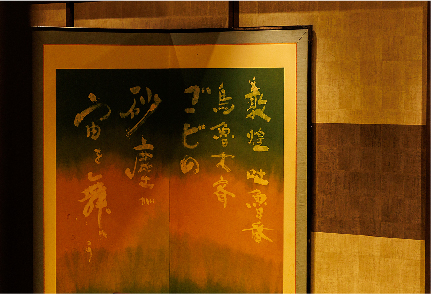 敦煌 吐魯番
烏魯木斉
ゴビの
砂塵
宙を舞う